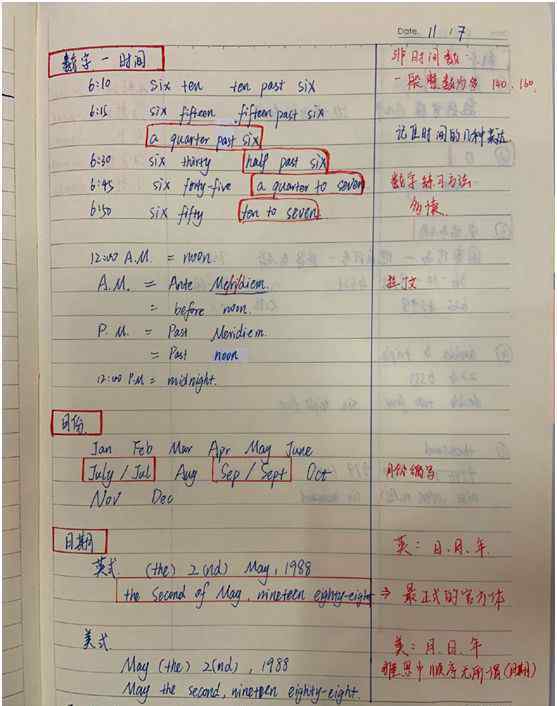 Date. 11 . 7
数字 — 时间
非时间数:
一般整数为多 140. 160.
6:10 six ten ten past six
6:15 six fifteen fifteen past six
a quarter past six
记住时间的几种表达
6:30 six thirty half past six
6:45 six forty-five a quarter to seven
数字练习方法
6:50 six fifty ten to seven
12:00 A.M. = noon.
A.M. = Ante Meridiem.
拉丁文
= before noon.
P.M. = Past Meridiem.
= Past noon
12:00 P.M = midnight.
月份.
Jan Feb Mar Apr May June
July / Jul Aug Sep / Sept Oct
月份缩写
Nov Dec
日期
英: 日. 月. 年.
英式. (the) 2(nd) May, 1988
the second of May, nineteen eighty-eight ⇒ 最正式的官方体
美式.
美: 月. 日. 年
May (the) 2(nd), 1988
雅思中顺序无所谓(日期)
May the second, nineteen eighty-eight.